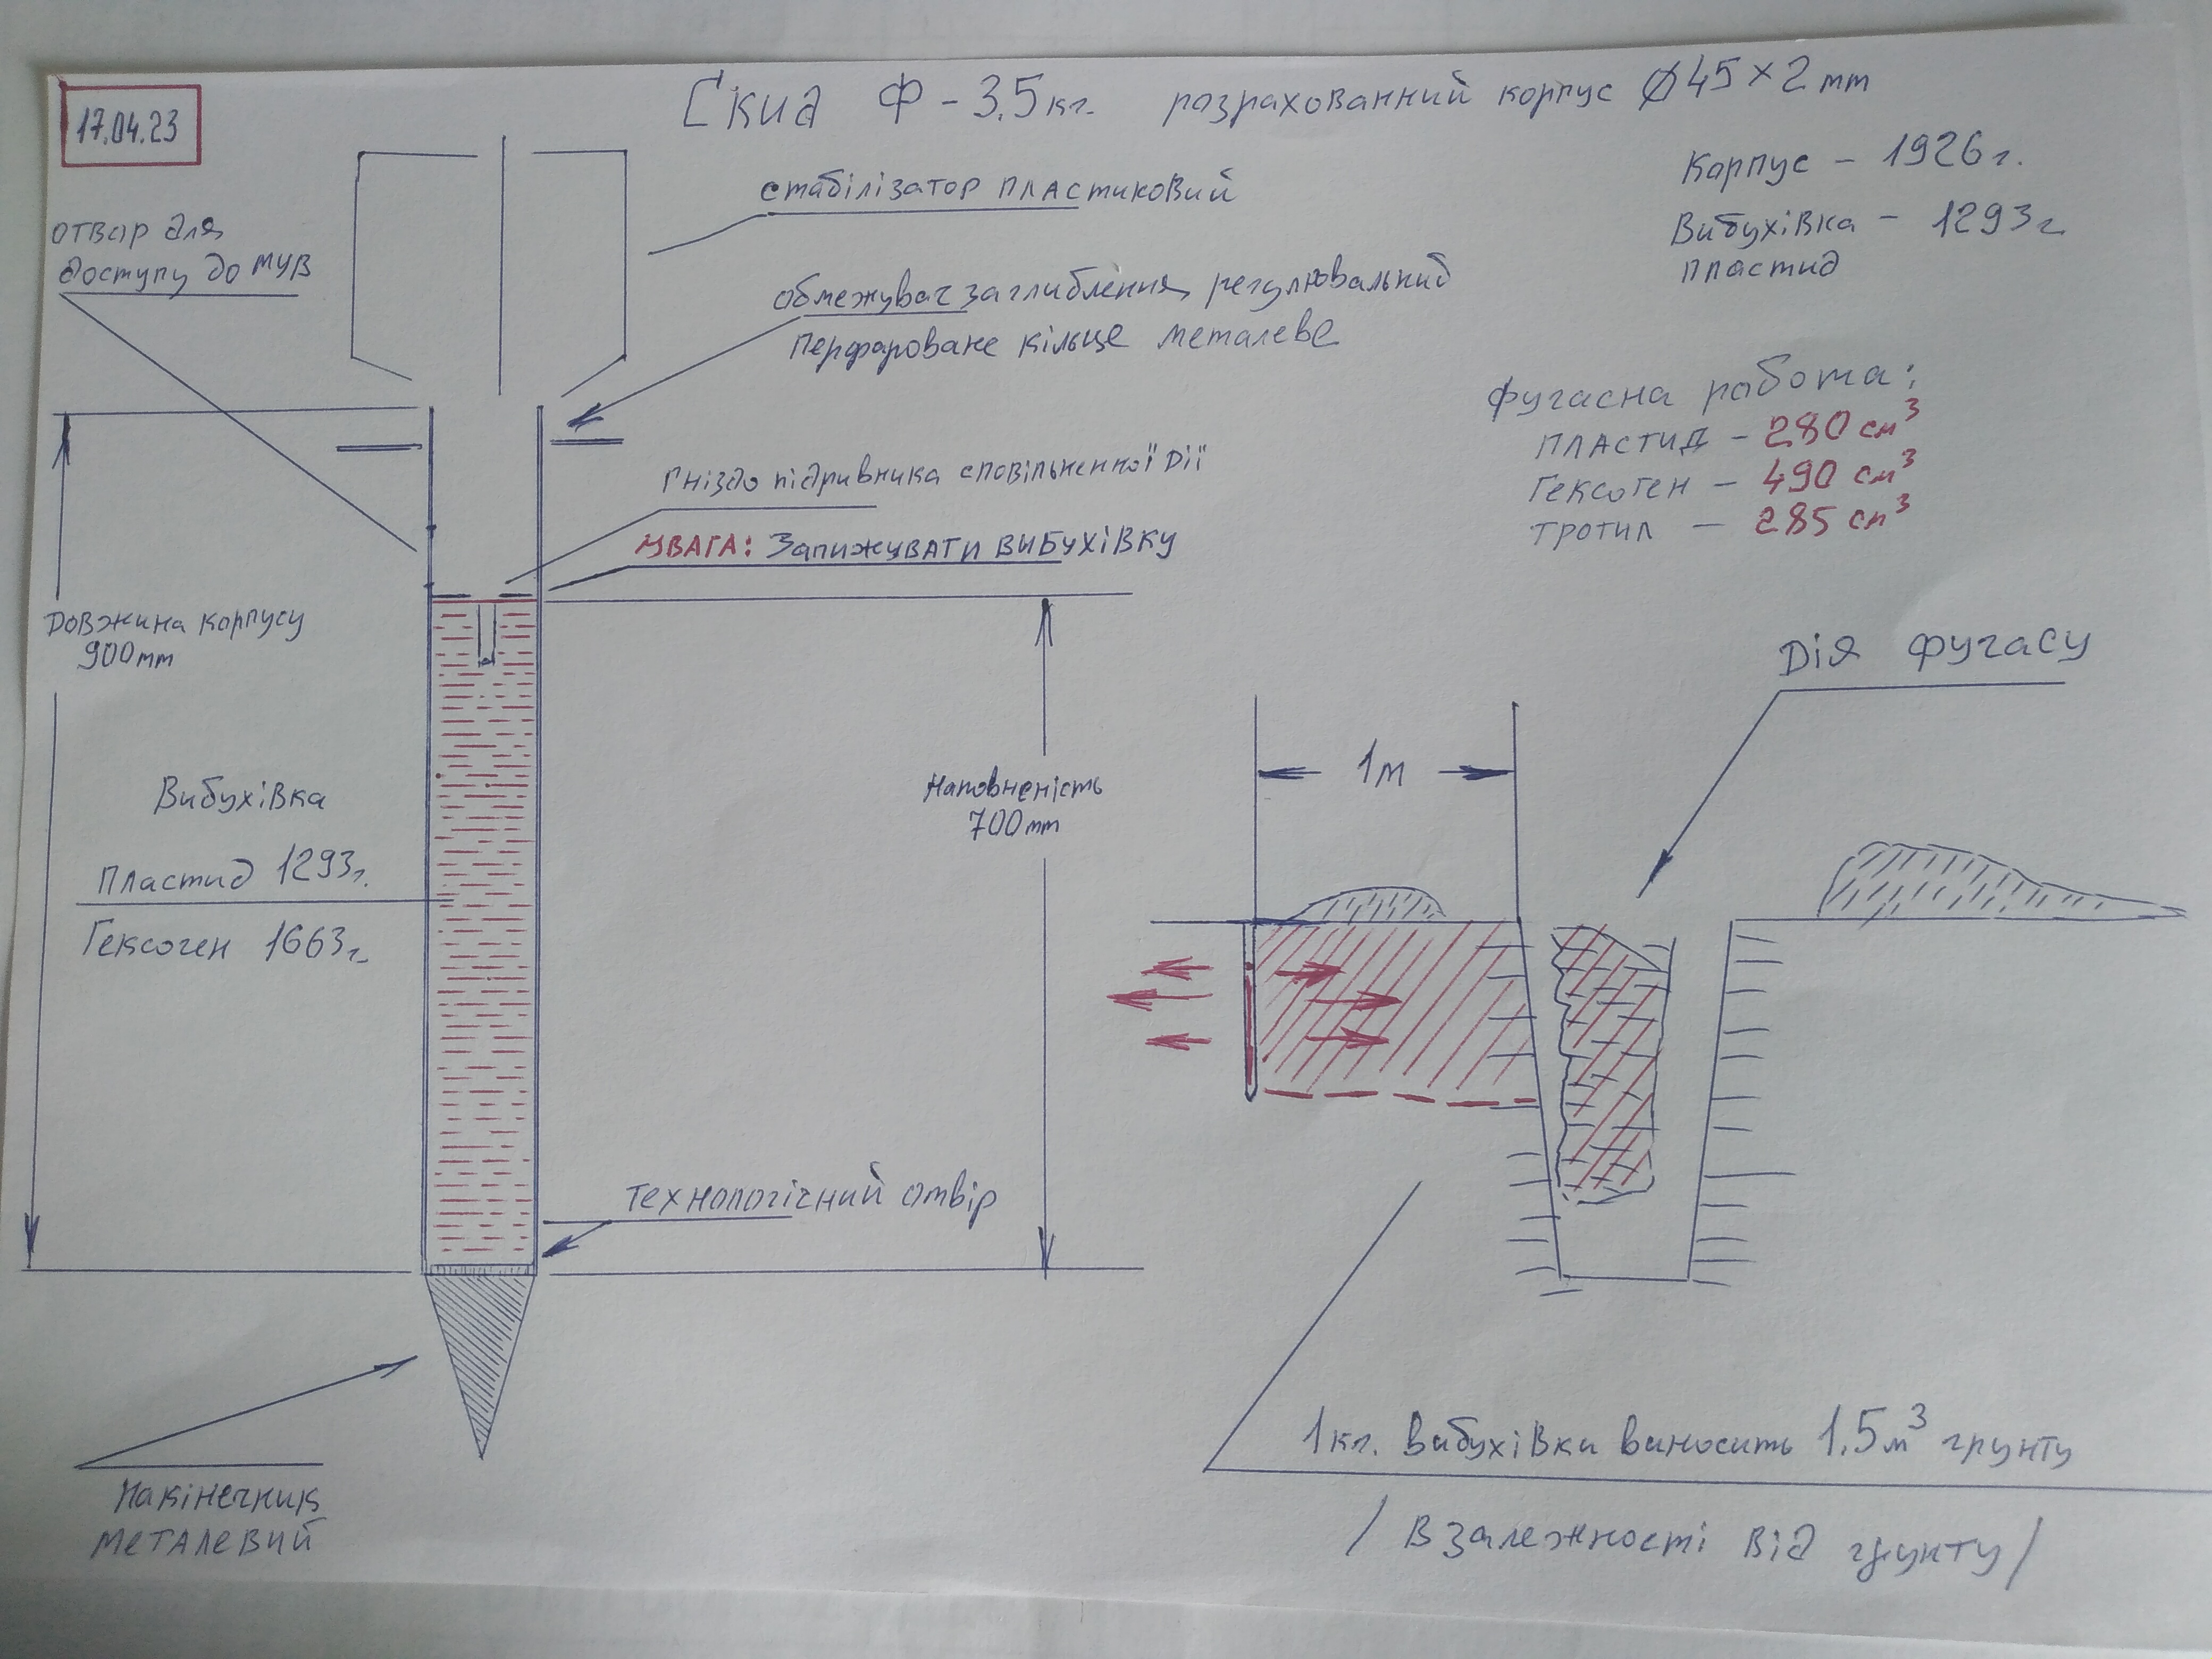 17.04.23
Скид Ф - 3.5кг. розрахованний корпус Ø45×2mm
Корпус - 1926г.
Вибухівка - 1293г
пластид
стабілізатор пластиковий
отвар для
доступу до МУВ
обмежувач заглиблення регулювальний
перфароване кільце металеве
фугасна работа:
пластид - 280 см³
Гексоген - 490 см³
тротил - 285 см³
Гніздо підривника сповільненної дії
УВАГА: Запижувати вибухівку
Довжина корпусу
900mm
Дія фугасу
1м
Наповненість
700mm
Вибухівка
пластид 1293г.
Гексоген 1663г.
Технологічний отвір
Накінечник
металевий
1кг. вибухівки виносить 1.5м³ грунту
/ в залежності від грунту /